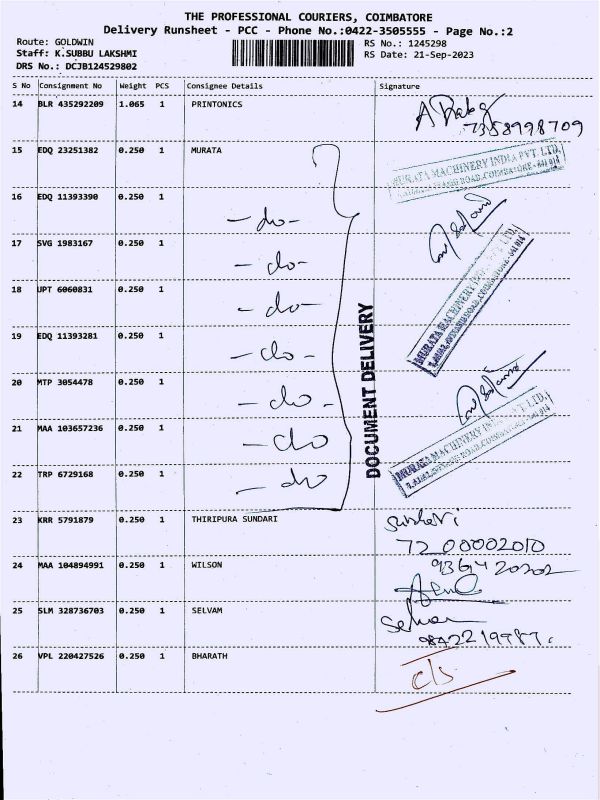 THE PROFESSIONAL COURIERS, COIMBATORE
Delivery Runsheet - PCC - Phone No.:0422-3505555 - Page No.:2
Route: GOLDWIN
Staff: K.SUBBU LAKSHMI
DRS No.: DCJB124529802
RS No.: 1245298
RS Date: 21-Sep-2023
S No Consignment No Weight PCS Consignee Details Signature
14 BLR 435292209 1.065 1 PRINTONICS
7358998709
15 EDQ 23251382 0.250 1 MURATA
MURATA MACHINERY INDIA PVT. LTD.
16 EDQ 11393390 0.250 1
-do-
17 SVG 1983167 0.250 1
-do-
18 UPT 6060831 0.250 1
-do-
MURATA MACHINERY INDIA PVT. LTD.
19 EDQ 11393281 0.250 1
-do-
20 MTP 3054478 0.250 1
-do-
DOCUMENT DELIVERY
21 MAA 103657236 0.250 1
-do
MURATA MACHINERY INDIA PVT. LTD.
22 TRP 6729168 0.250 1
-do
23 KRR 5791879 0.250 1 THIRIPURA SUNDARI
7200002010
24 MAA 104894991 0.250 1 WILSON
25 SLM 328736703 0.250 1 SELVAM
Selvam
26 VPL 220427526 0.250 1 BHARATH
c/s